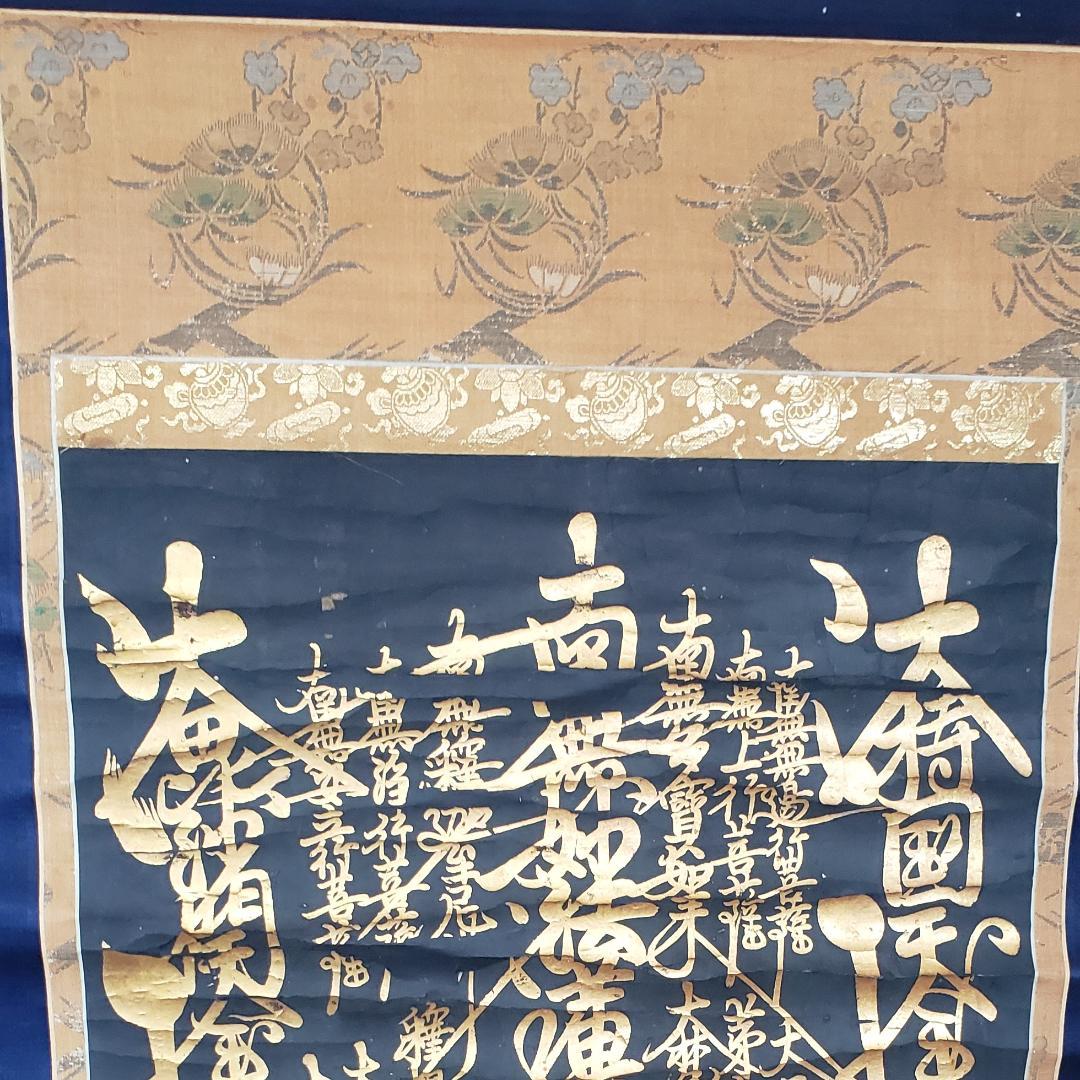 大持國天
南無無邊行菩薩 大
南無上行菩薩 第
南無多寶如来 大梵
南無妙法蓮
南無釋迦牟尼 釋
南無浄行菩薩
南無安立行菩薩
大毘沙門天